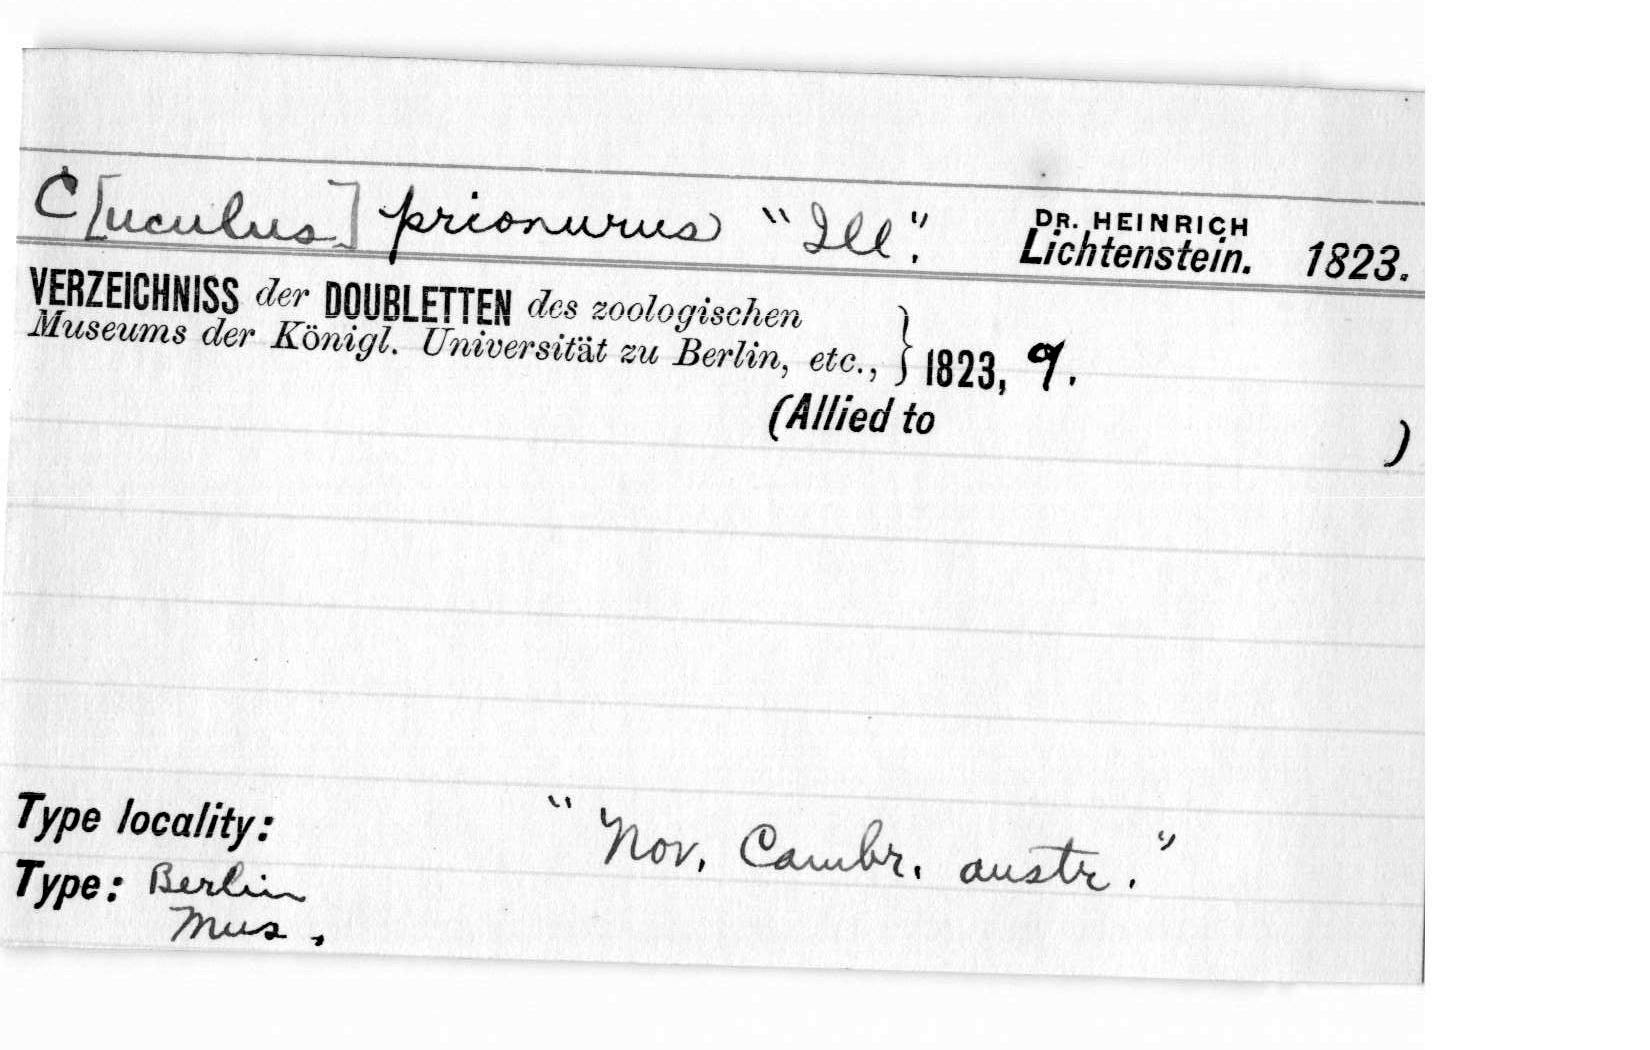 C[uculus] prionurus "Ill". DR. HEINRICH
Lichtenstein. 1823.
VERZEICHNISS der DOUBLETTEN des zoologischen
Museums der Königl. Universität zu Berlin, etc., } 1823, 9.
(Allied to )
Type locality: "Nov. Cambr. austr."
Type: Berlin
Mus.